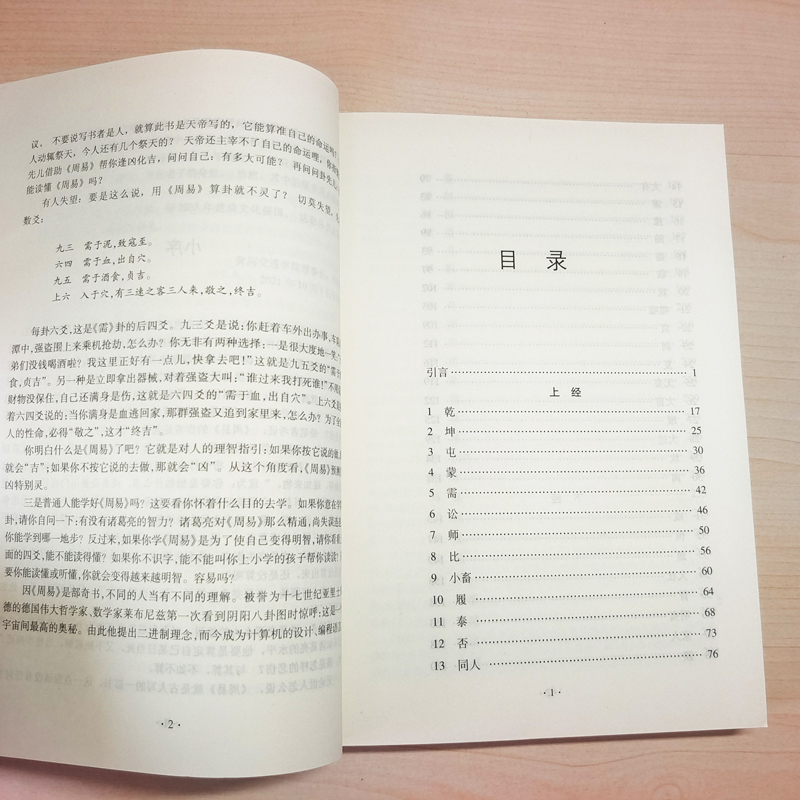 议。不要说写书者是人，就算此书是天帝写的，它能算准自己的命运吗？
人动辄祭天，今人还有几个祭天的？天帝还主宰不了自己的命运哩，你
先儿借助《周易》帮你逢凶化吉，问问自己：有多大可能？再问问卦先儿
能读懂《周易》吗？
有人失望：要是这么说，用《周易》算卦就不灵了？切莫失望，
数爻：
九三 需于泥，致寇至。
六四 需于血，出自穴。
九五 需于酒食，贞吉。
上六 入于穴，有三速之客三人来，敬之，终吉。
每卦六爻，这是《需》卦的后四爻。九三爻是说：你赶着车外出办事，车
潭中，强盗围上来乘机抢劫，怎么办？你无非有两种选择：一是很大度地一笑：
弟们没钱喝酒啦？我这里正好有一点儿，快拿去吧！”这就是九五爻的“需于
食，贞吉”。另一种是立即拿出器械，对着强盗大叫：“谁过来我打死谁！”不
财物没保住，自己还满身是伤，这就是六四爻的“需于血，出自穴”。上六爻
着六四爻说的：当你满身是血逃回家，那群强盗又追到家里来，怎么办？为了
人的性命，必得“敬之”，这才“终吉”。
你明白什么是《周易》了吧？它就是对人的理智指引：如果你按它说的做，
就会“吉”；如果你不按它说的去做，那就会“凶”。从这个角度看，《周易》预
凶特别灵。
三是普通人能学好《周易》吗？这要看你怀着什么目的去学。如果你意在
卦，请你自问一下：有没有诸葛亮的智力？诸葛亮对《周易》那么精通，尚失误连
你能学到哪一地步？反过来，如果你学《周易》是为了使自己变得明智，请你看
面的四爻，能不能读得懂？如果你不识字，能不能叫你上小学的孩子帮你读读？
要你能读懂或听懂，你就会变得越来越明智。容易吗？
因《周易》是部奇书，不同的人当有不同的理解。被誉为十七世纪亚里士
德的德国伟大哲学家、数学家莱布尼兹第一次看到阴阳八卦图时惊呼：这是一
宇宙间最高的奥秘。由此他提出二进制理念，而今成为计算机的设计、编程语
·2·
目 录
引言 1
上 经
1 乾 17
2 坤 25
3 屯 30
4 蒙 36
5 需 42
6 讼 46
7 师 50
8 比 56
9 小畜 60
10 履 64
11 泰 68
12 否 73
13 同人 76
·1·